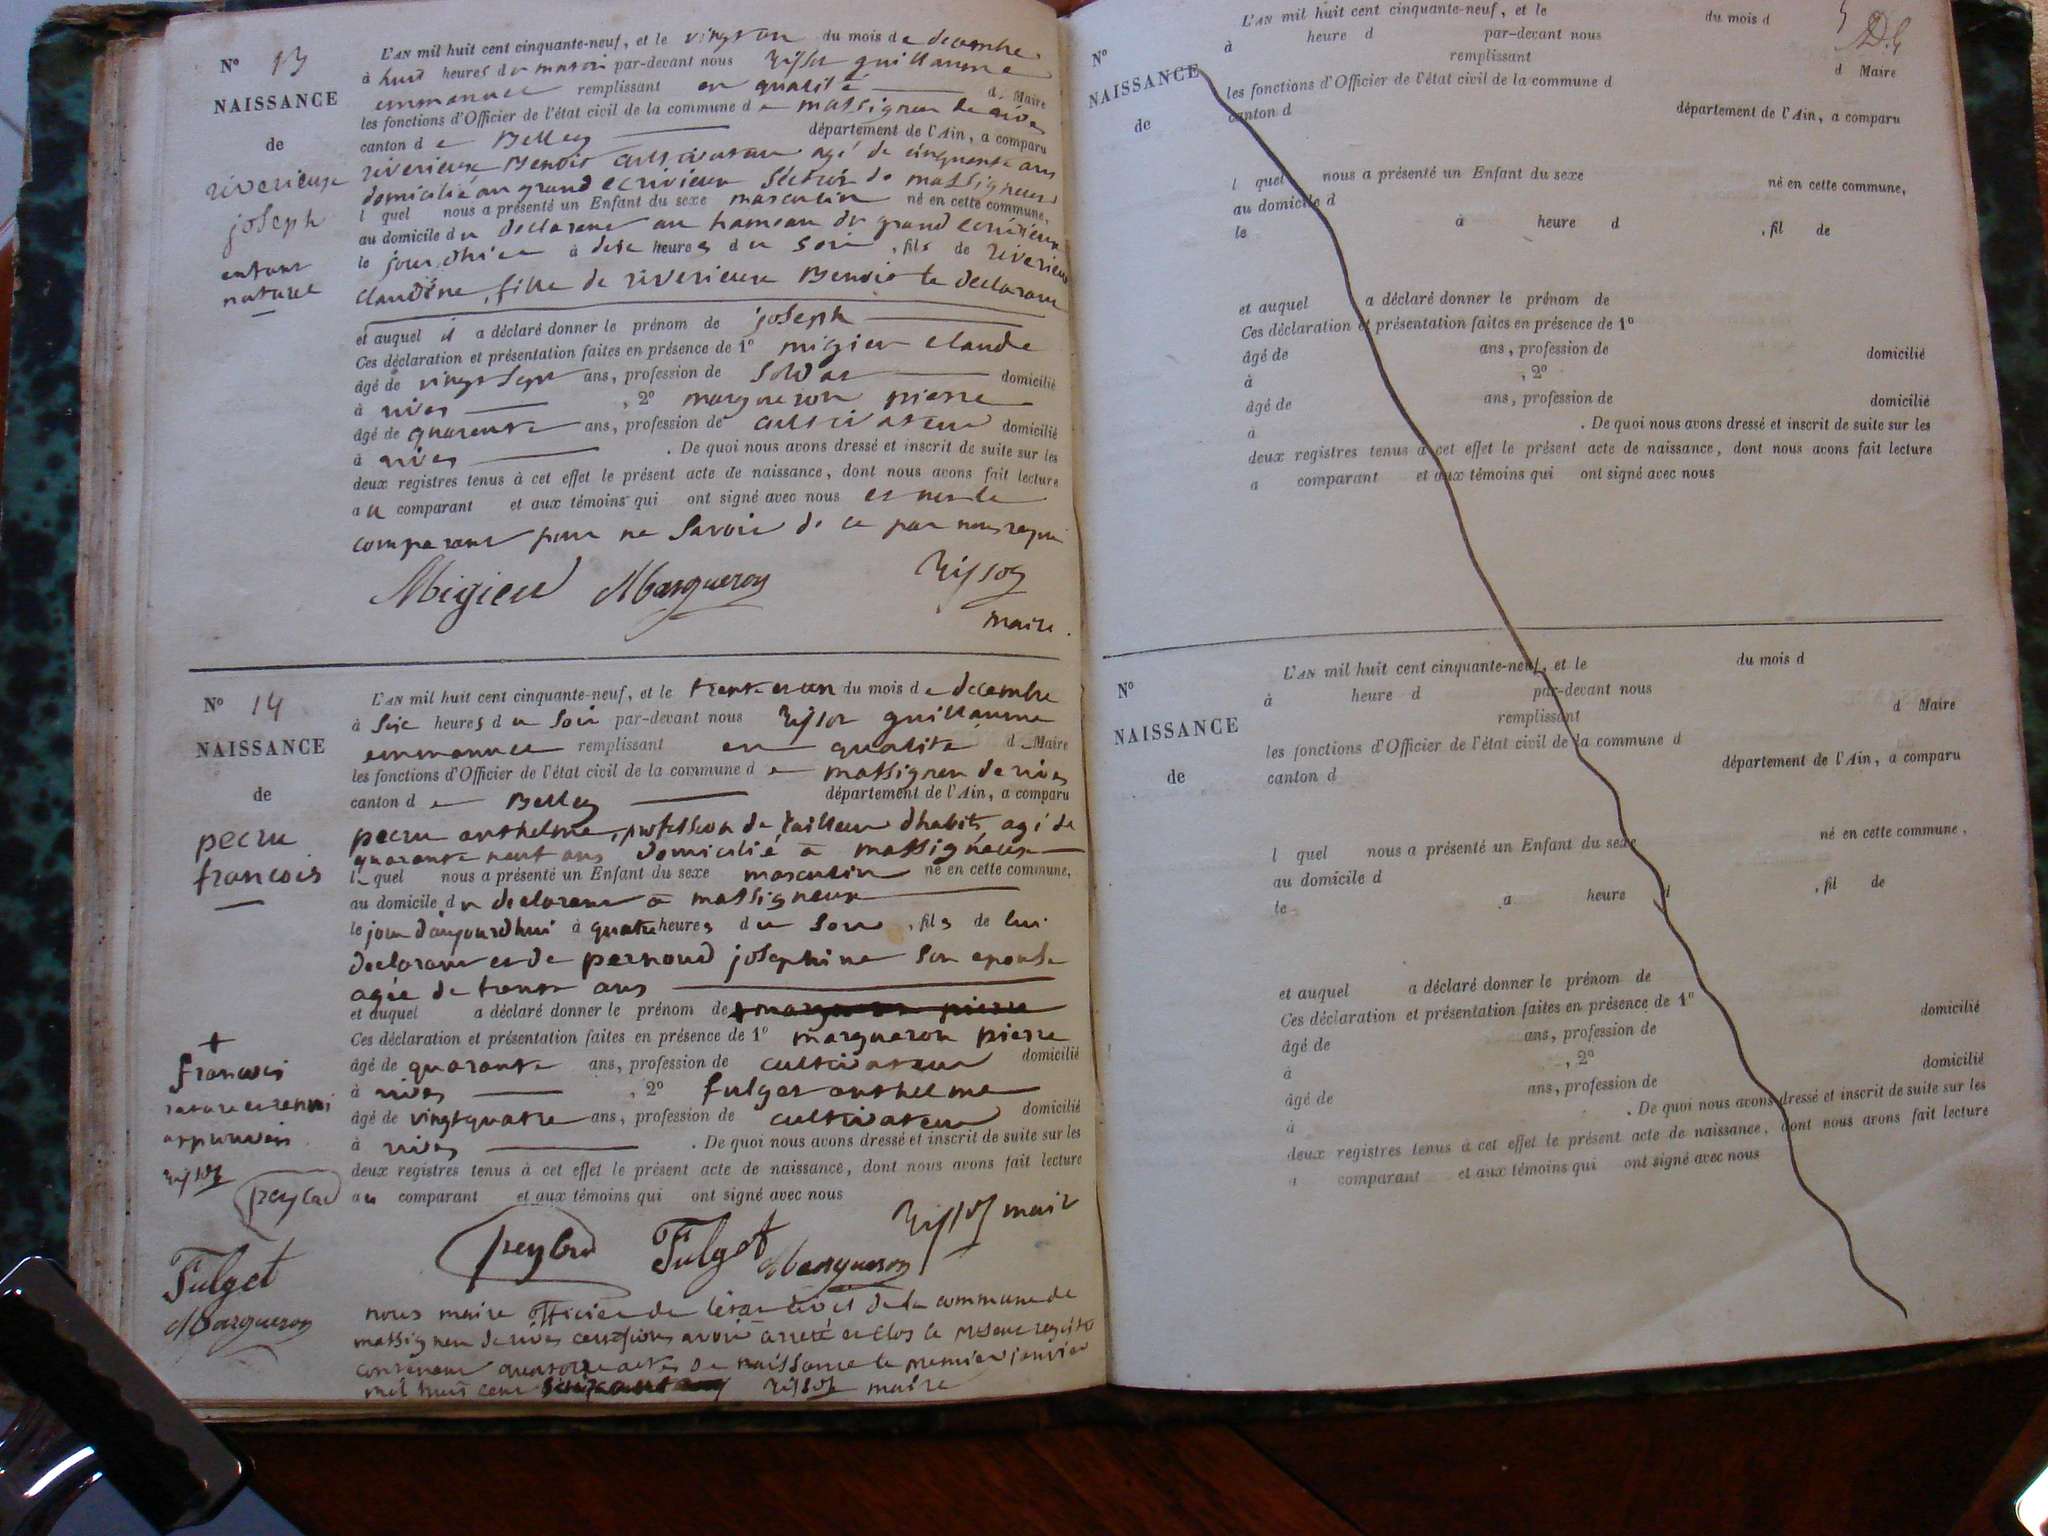 N° 13
NAISSANCE
de
riverieuse
joseph
enfant
naturel
L'AN mil huit cent cinquante-neuf, et le vingt un du mois de decembre
à huit heures du matin par-devant nous Rissoz guillaume
emmanuel remplissant en qualité d Maire
les fonctions d'Officier de l'état civil de la commune de massigneu de rives
canton de Belley département de l'Ain, a comparu
riverieuse Benoit cultivateur agé de cinquante ans
domicilié au grand ecrivieux section de massigneux
l quel nous a présenté un Enfant du sexe masculin né en cette commune,
au domicile du declarant au hameau du grand ecrivieux
le jour d'hier à dix heures du soir, fils de riverieuse
claudine, fille de riverieuse Benoit le declarant
et auquel il a déclaré donner le prénom de joseph
Ces déclaration et présentation faites en présence de 1° migieu claude
âgé de vingt sept ans, profession de soldat domicilié
à rives, 2° margueron pierre
âgé de quarente ans, profession de cultivateur domicilié
à rives. De quoi nous avons dressé et inscrit de suite sur les
deux registres tenus à cet effet le présent acte de naissance, dont nous avons fait lecture
au comparant et aux témoins qui ont signé avec nous et non le
comparant pour ne savoir de ce par nous requi
Migieu Margueron Rissoz
maire.
N° 14
NAISSANCE
de
pecru
francois
L'AN mil huit cent cinquante-neuf, et le trente et un du mois de decembre
à six heures du soir par-devant nous Rissoz guillaume
emmanuel remplissant en qualité d Maire
les fonctions d'Officier de l'état civil de la commune de massigneu de rives
canton de Belley département de l'Ain, a comparu
pecru anthelme, profession de tailleur d'habits agé de
quarante neuf ans domicilié à massigneux
le quel nous a présenté un Enfant du sexe masculin né en cette commune,
au domicile du declarant à massigneux
le jour d'aujourdhui à quatre heures du soir, fils de lui
declarant et de pernoud josephine son epouse
agée de trente ans
et auquel a déclaré donner le prénom de + margueron pierre
Ces déclaration et présentation faites en présence de 1° margueron pierre
âgé de quarante ans, profession de cultivateur domicilié
à rives, 2° fulget anthelme
âgé de vingtquatre ans, profession de cultivateur domicilié
à rives. De quoi nous avons dressé et inscrit de suite sur les
deux registres tenus à cet effet le présent acte de naissance, dont nous avons fait lecture
au comparant et aux témoins qui ont signé avec nous
+
francois
rature et renvoi
approuvés
Rissoz
Fulget
Margueron
Fulget Margueron Rissoz maire
nous maire officier de l'état civil de la commune de
massigneu de rives certifions avoir arreté et clos le present registre
contenant quatorze actes de naissance le premier janvier
mil huit cent soixante Rissoz maire
N°
NAISSANCE
de
L'AN mil huit cent cinquante-neuf, et le du mois d
à heure d par-devant nous
remplissant d Maire
les fonctions d'Officier de l'état civil de la commune d
canton d département de l'Ain, a comparu
l quel nous a présenté un Enfant du sexe né en cette commune,
au domicile d
le à heure d, fil de
et auquel a déclaré donner le prénom de
Ces déclaration et présentation faites en présence de 1°
âgé de ans, profession de domicilié
à, 2°
âgé de ans, profession de domicilié
à. De quoi nous avons dressé et inscrit de suite sur les
deux registres tenus à cet effet le présent acte de naissance, dont nous avons fait lecture
a comparant et aux témoins qui ont signé avec nous
N°
NAISSANCE
de
L'AN mil huit cent cinquante-neuf, et le du mois d
à heure d par-devant nous
remplissant d Maire
les fonctions d'Officier de l'état civil de la commune d
canton d département de l'Ain, a comparu
l quel nous a présenté un Enfant du sexe né en cette commune,
au domicile d
le à heure d, fil de
et auquel a déclaré donner le prénom de
Ces déclaration et présentation faites en présence de 1°
âgé de ans, profession de domicilié
à, 2°
âgé de ans, profession de domicilié
à. De quoi nous avons dressé et inscrit de suite sur les
deux registres tenus à cet effet le présent acte de naissance, dont nous avons fait lecture
a comparant et aux témoins qui ont signé avec nous